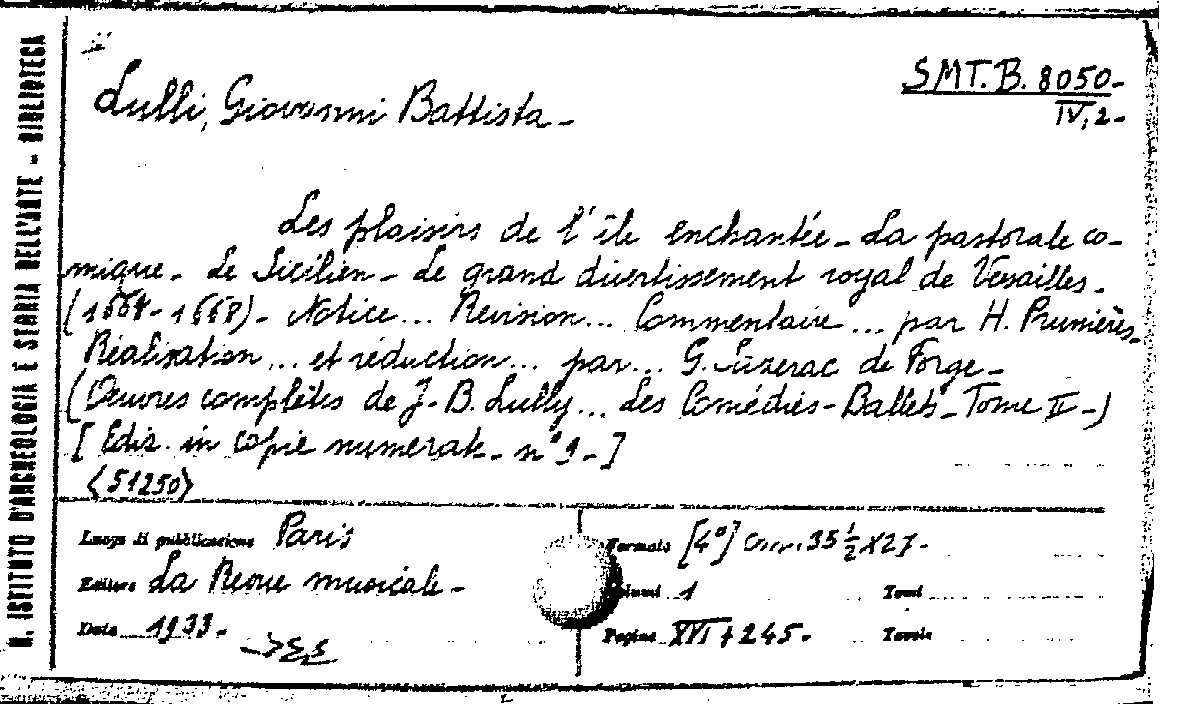 R. ISTITUTO D'ARCHEOLOGIA E STORIA DELL'ARTE - BIBLIOTECA
Lulli, Giovanni Battista -
SMT. B. 8050-
IV, 2-
Les plaisirs de l'île enchantée - La pastorale co-
mique - Le Sicilien - Le grand divertissement royal de Versailles -
(1664-1668) - Notice... Revision... Commentaire... par H. Prunières -
Réalisation... et réduction... par... G. Sazerac de Forge -
(Œuvres complètes de J.-B. Lully... Les Comédies-Ballets - Tome II -)
[Ediz. in copie numerate - n° 9 -]
<51250>
Luogo di pubblicazione Paris
Editore La Revue musicale -
Data 1933 -
Formato [4°] 35 1/2 X 27 -
Volumi 1 Tomi
Pagine XVI + 245 - Tavole